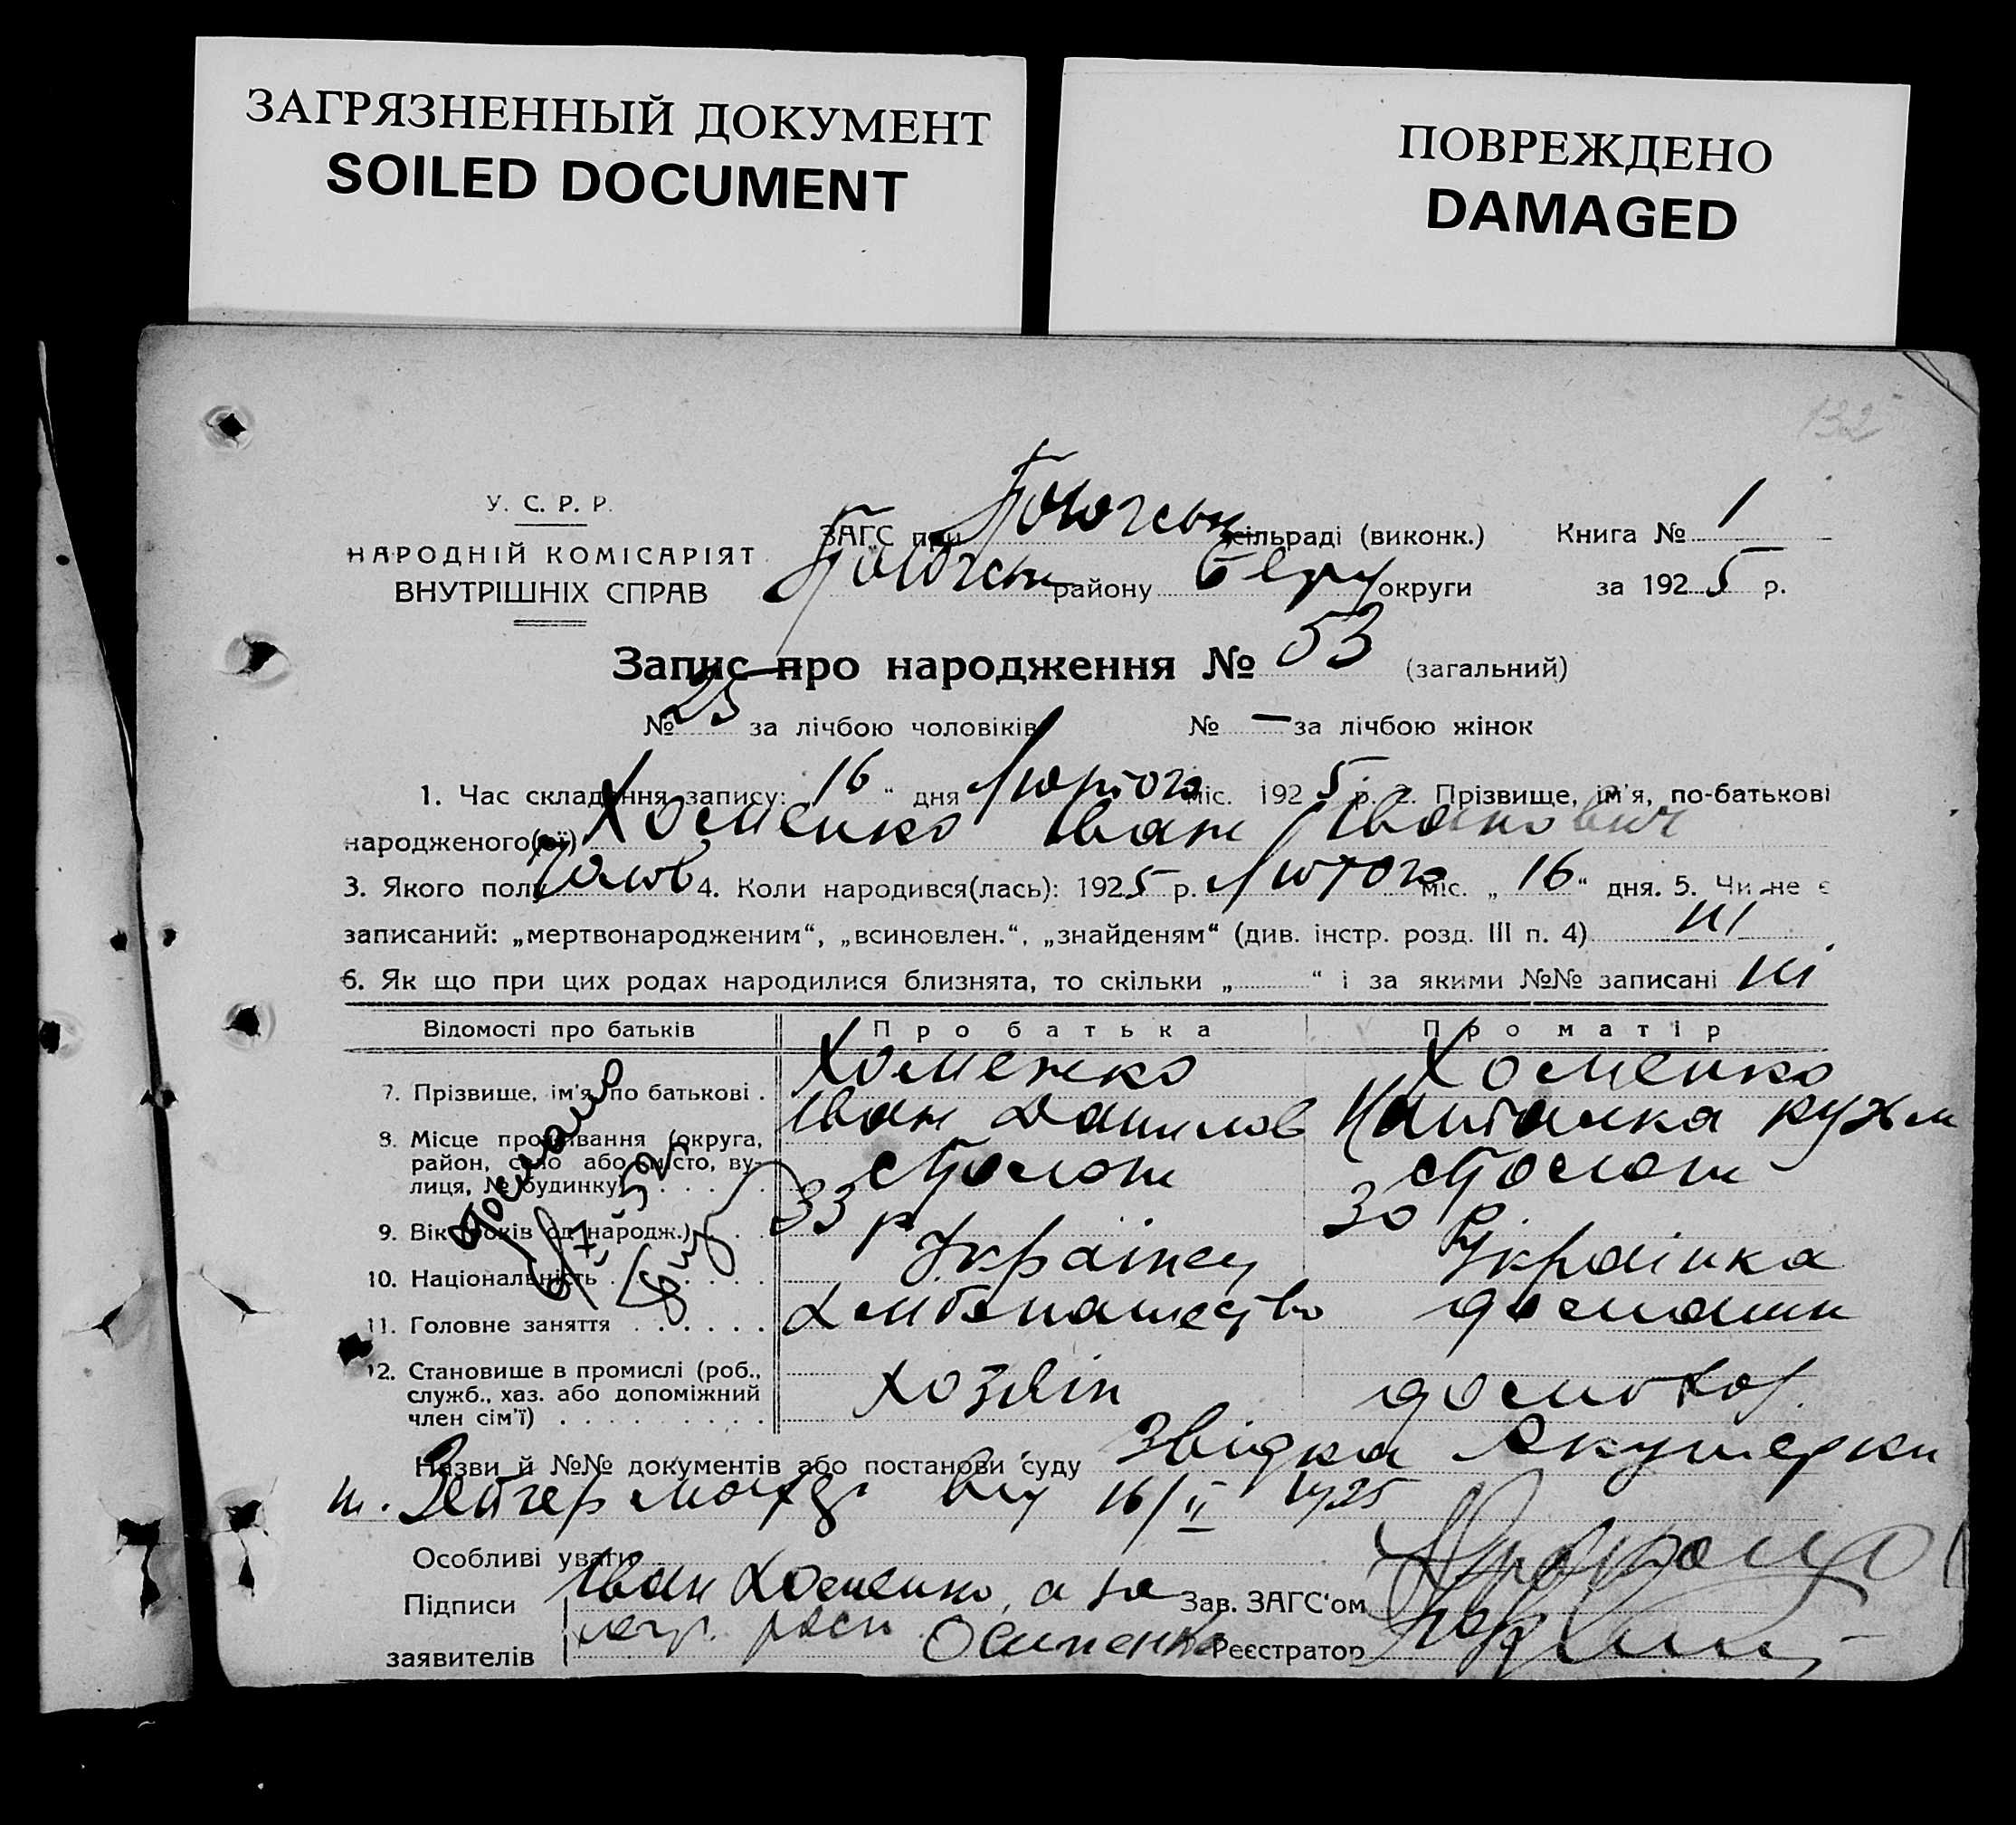 ЗАГРЯЗНЕННЫЙ ДОКУМЕНТ
SOILED DOCUMENT
ПОВРЕЖДЕНО
DAMAGED
132
У. С. Р. Р.
НАРОДНІЙ КОМІСАРІЯТ
ВНУТРІШНІХ СПРАВ
ЗАГС при сільраді (виконк.) Книга № 1
району округи за 1925 р.
Запис про народження № 53 (загальний)
№ 25 за лічбою чоловіків № — за лічбою жінок
1. Час складення запису: 16 “ дня Лютого міс. 1925 р. 2. Прізвище, ім'я, по-батькові
народженого(ої) Хоменко Іван Іванович
3. Якого полу чолов 4. Коли народився(лась): 1925 р. Лютого міс. „ 16 “ дня. 5. Чи не є
записаний: „мертвонародженим“, „всиновлен.“, „знайденям“ (див. інстр. розд. III п. 4) ні
6. Як що при цих родах народилися близнята, то скільки „ “ і за якими №№ записані ні
Відомості про батьків Про батька Про матір
7. Прізвище, ім'я, по батькові . Хоменко Іван Данилов Хоменко Наталка Кузьм
8. Місце проживання (округа,
район, село або місто, ву-
лиця, № будинку) . . . .
9. Вік (років од народж.) . . . 33 р 30 р
10. Національність . . . . . . . Українец Українка
11. Головне заняття . . . . . . домашн
12. Становище в промислі (роб.,
служб., хаз. або допоміжний
член сім'ї) . . . . . . . . . Хозяїн
Назви й №№ документів або постанови суду Звідка Акушерки
від 16/II 1925
Особливі уваги
Підписи Іван Хоменко, а за Зав. ЗАГС'ом
заявителів Осипенко Реєстратор